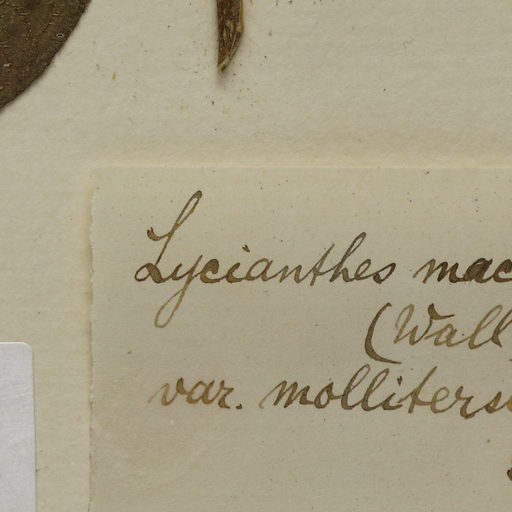 Lycianthes mac
(Wall
var. molliters